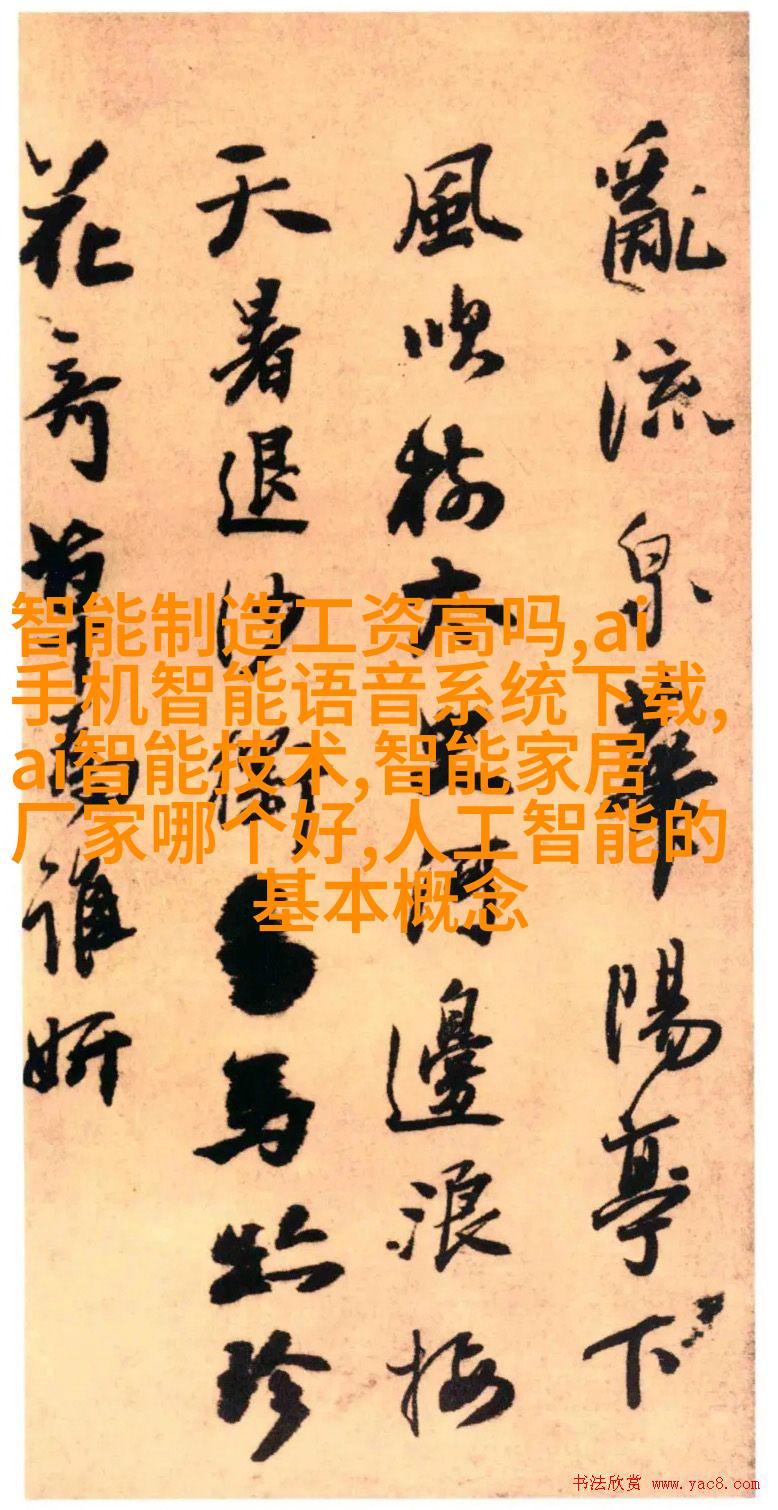 亂流泉華陽亭下
風吹樹 邊浪接
天暑退沙 馬 珍
花奇草 誰妍
智能制造工资高吗,ai
手机智能语音系统下载,
ai智能技术,智能家居
厂家哪个好,人工智能的
基本概念
书法欣赏 www.yac8.com